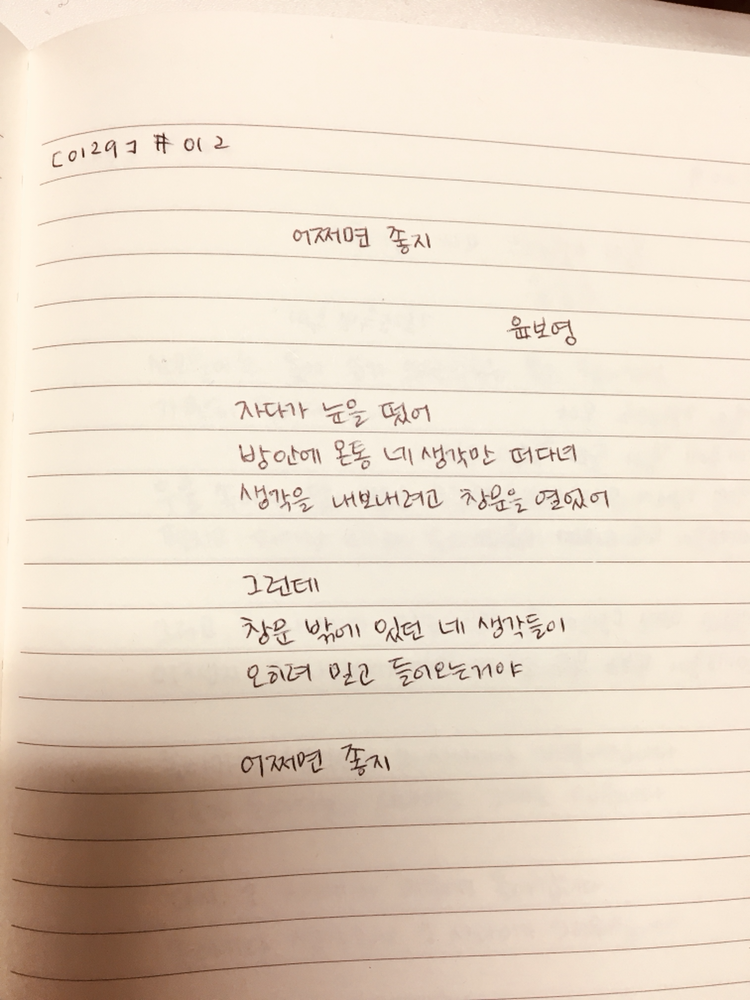 [0129] #012
어쩌면 좋지
윤보영
자다가 눈을 떴어
방안에 온통 네 생각만 떠다녀
생각을 내보내려고 창문을 열었어
그런데
창문 밖에 있던 네 생각들이
오히려 밀고 들어오는거야
어쩌면 좋지